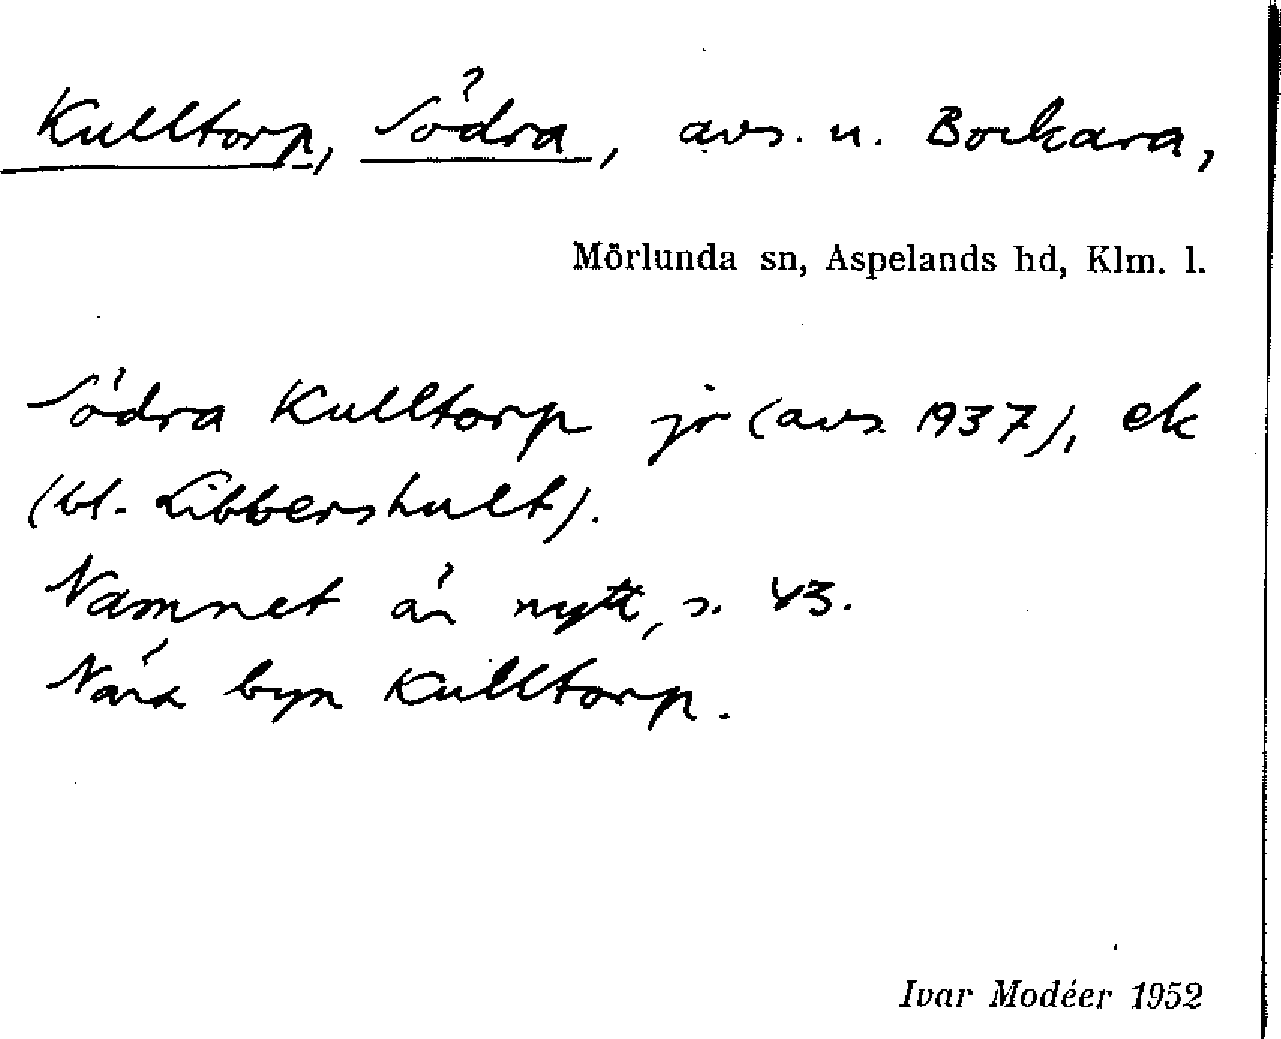 Kulltorp, Södra, avs. u. Bockara,
Mörlunda sn, Aspelands hd, Klm. l.
Södra Kulltorp jr (avs. 1937), ek
(bl. Libbershult).
Namnet är nytt, s. 43.
Nära byn Kulltorp.
Ivar Modéer 1952